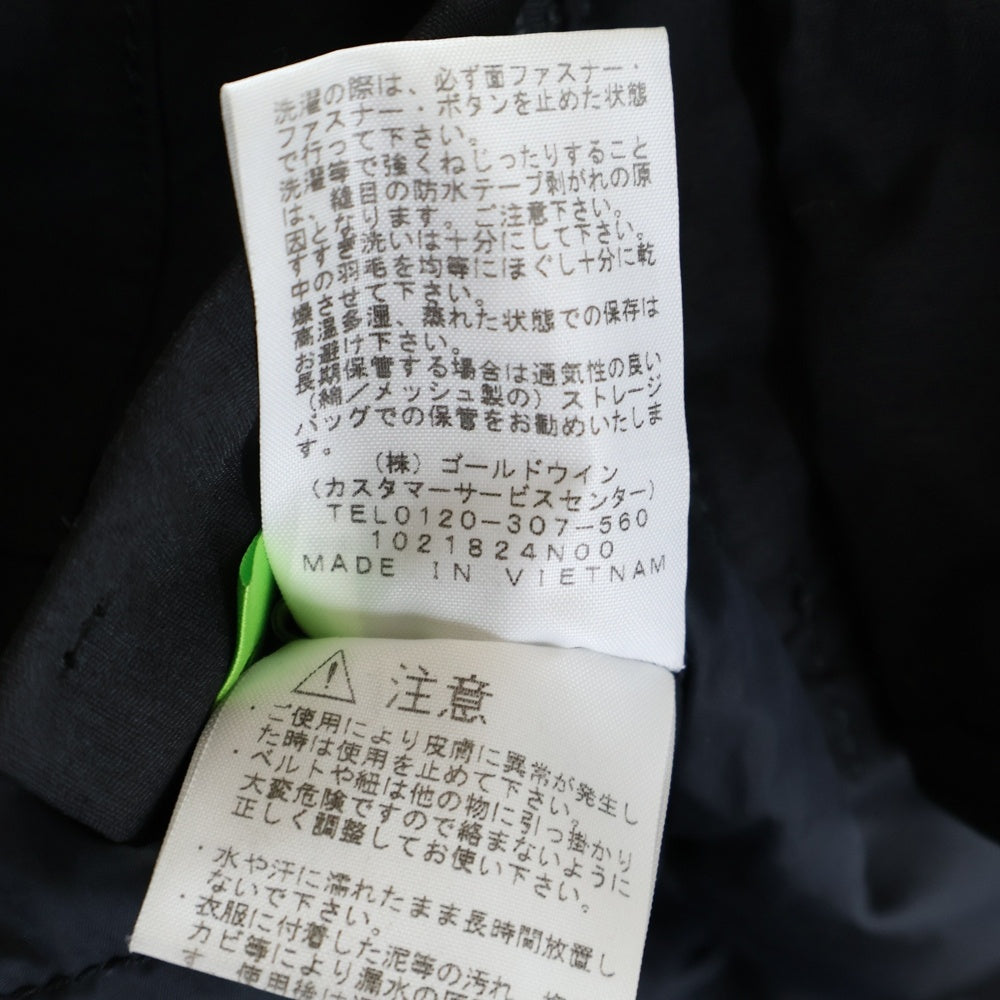 洗濯の際は、必ず面ファスナー・
ファスナー・ボタンを止めた状態
で行って下さい。
洗濯等で強くねじったりすること
は、縫目の防水テープ剥がれの原
因となります。ご注意下さい。
すすぎ洗いは十分にして下さい。
中の羽毛を均等にほぐし十分に乾
燥させて下さい。
高温多湿、蒸れた状態での保存は
お避け下さい。
長期保管する場合は通気性の良い
(綿/メッシュ製の)ストレージ
バッグでの保管をお勧めいたしま
す。
(株)ゴールドウイン
(カスタマーサービスセンター)
TEL0120-307-560
1021824N00
MADE IN VIETNAM
注意
・ご使用により皮膚に異常が発生し
た時は使用を止めて下さい。
・ベルトや紐は他の物に引っ掛かり
大変危険ですので絡まないように
正しく調整してお使い下さい。
・水や汗に濡れたまま長時間放置し
ないで下さい。
・衣服に付着した泥等の汚れ、
カビ等により漏水の原
す。使用後は